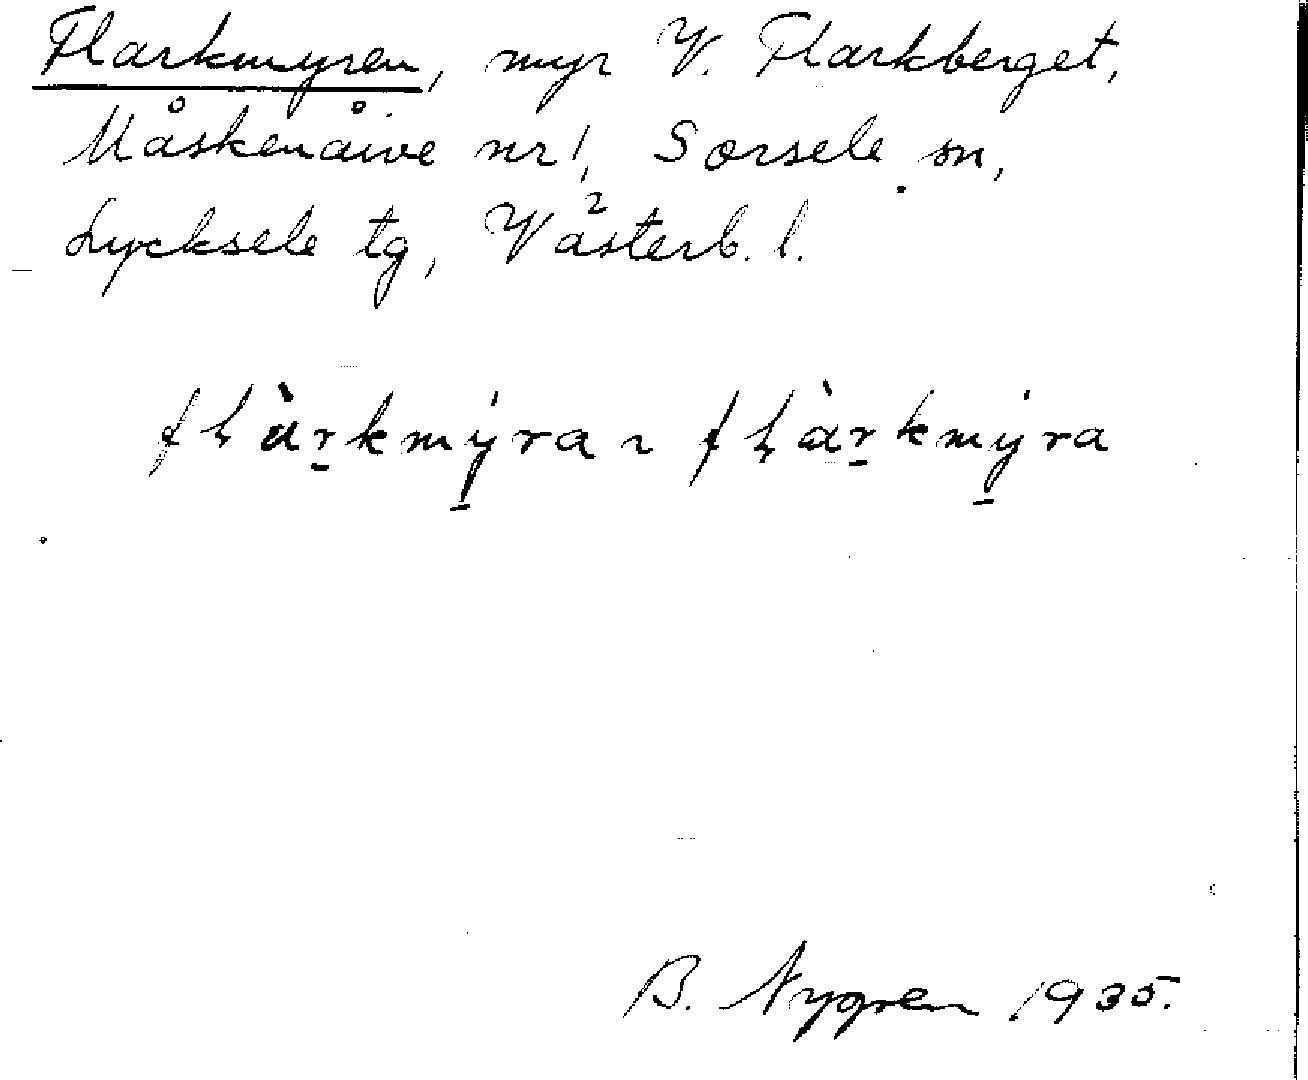 Flarkmyren, myr V. Flarkberget,
Måskenåive nr 1, Sorsele sn,
Lycksele tg, Västerb. l.
fḷàr̠kmy̠̍ra ~ fḷàr̠kmy̠̍ra
B. Nygren 1935.